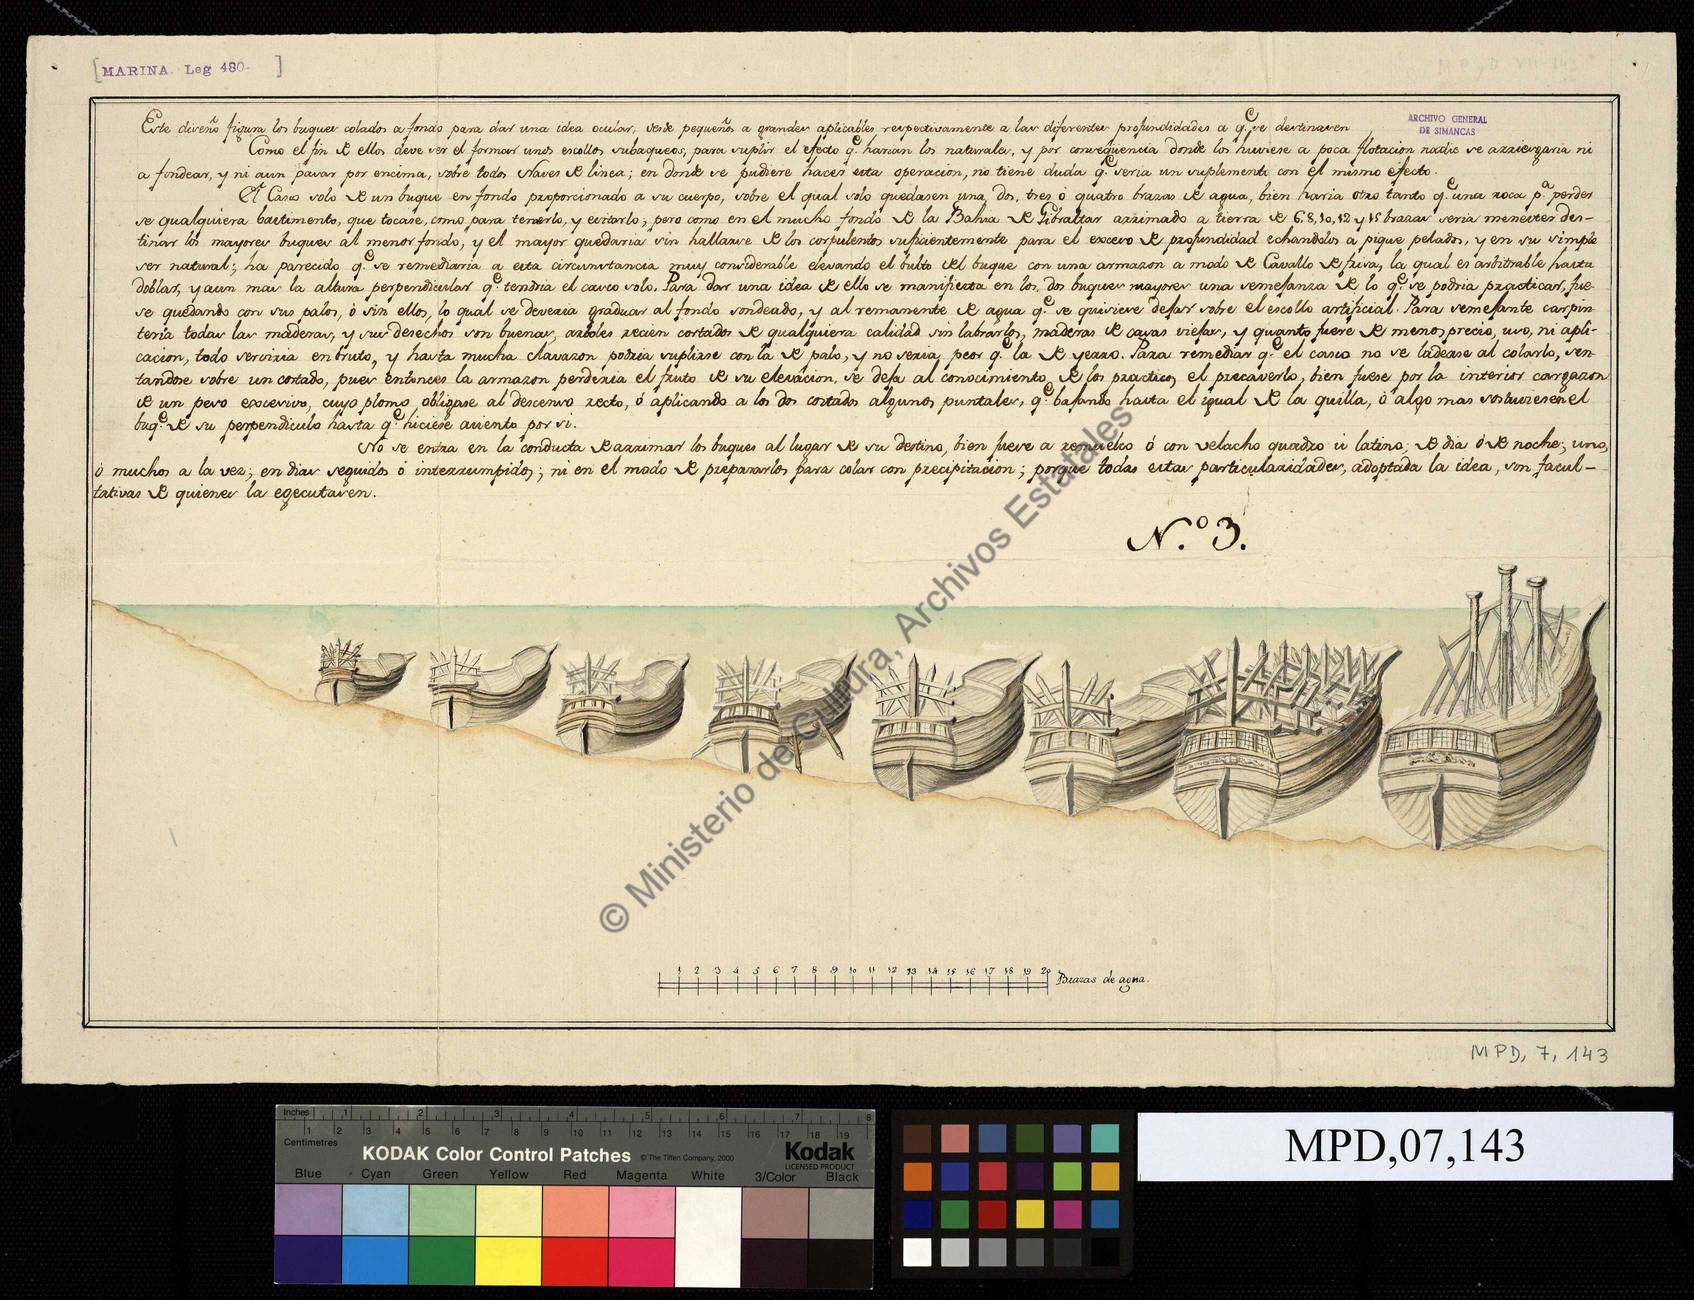 [MARINA. Leg 480- ]
ARCHIVO GENERAL
DE SIMANCAS
Este diseño figura los buques colados a fondo para dar una idea ocular, desde pequeños a grandes aplicables respectivamente a las diferentes profundidades a q.e se destinasen
Como el fin de ellos deve ser el formar unos escollos subaqueos, para suplir el efecto q.e harian los naturales, y por consequencia donde los huviese a poca flotacion nadie se arriesgaria ni
a fondear, y ni aun pasar por encima, sobre todos Naves de linea; en donde se pudiere hacer esta operacion, no tiene duda q.e seria un suplemento con el mismo efecto.
El Casco solo de un buque en fondo proporcionado a su cuerpo, sobre el qual solo quedasen una, dos, tres ó quatro brazas de agua, bien haria otro tanto q.e una roca p.a perder
se qualquiera bastimento, que tocase, como para temerlo, y evitarlo; pero como en el mucho fondo de la Bahia de Gibraltar arrimado a tierra de 6. 8, 10, 12 y 15 brazas seria menester des-
tinar los mayores buques al menor fondo, y el mayor quedaria sin hallarse de los corpulentos suficientemente para el exceso de profundidad echandolos a pique pelados, y en su simple
ser natural; ha parecido q.e se remediaria a esta circunstancia muy considerable elevando el bulto del buque con una armazon a modo de Cavallo de frisa, la qual es arbitrable hasta
doblar, y aun mas la altura perpendicular q.e tendria el casco solo. Para dar una idea de ello se manifiesta en los dos buques mayores una semejanza de lo q.e se podria practicar, fue-
se quedando con sus palos, ó sin ellos, lo qual se deveria graduar al fondo sondeado, y al remanente de agua q.e se quisiere dejar sobre el escollo artificial. Para semejante carpin
teria todas las maderas, y sus desechos son buenas, arboles recien cortados de qualquiera calidad sin labrarlos, maderas de casas viejas, y quanto fuere de menos precio, uso, ni apli-
cacion, todo serviria en bruto, y hasta mucha clavazon podria suplirse con la de palo, y no seria peor q.e la de yerro. Para remediar q.e el casco no se ladease al colarlo, sen-
tandose sobre un costado, pues entonces la armazon perderia el fruto de su elevacion, se deja al conocimiento de los practicos el precaverlo, bien fuese por la interior cargazon
de un peso excesivo, cuyo plomo obligase al descenso recto, ó aplicando a los dos costados algunos puntales, q.e bajando hasta el igual de la quilla, ó algo mas sostuviesen el
buq.e de su perpendiculo hasta q.e hiciese asiento por si.
No se entra en la conducta de arrimar los buques al lugar de su destino, bien fuese a remolco ó con velacho quadro ú latino; de dia ó de noche; uno,
ó muchos a la vez; en dias seguidos ó interrumpidos; ni en el modo de prepararlos para colar con precipitacion; porque todas estas particularidades, adoptada la idea, son facul-
tativas de quienes la egecutasen.
N.º 3.
© Ministerio de Cultura, Archivos Estatales
1 2 3 4 5 6 7 8 9 10 11 12 13 14 15 16 17 18 19 20 Brazas de agua.
MPD, 7, 143
Inches 1 2 3 4 5 6 7 8
Centimetres 1 2 3 4 5 6 7 8 9 10 11 12 13 14 15 16 17 18 19
KODAK Color Control Patches © The Tiffen Company, 2000 Kodak
LICENSED PRODUCT
Blue Cyan Green Yellow Red Magenta White 3/Color Black
MPD,07,143